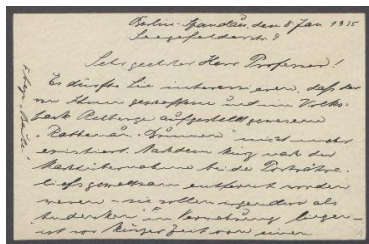 Berlin-Spandau, den 8 Jan 1935
Seegefelderstr. 9
Sehr geehrter Herr Professor!
Es dürfte Sie interessieren, daß der
von Ihnen geschaffene und im Volks-
park Rehberge aufgestellt gewesene
"Rathenau-Brunnen" nicht mehr
existiert. Nachdem kurz nach der
Machtübernahme beide Porträt-
reliefs gewaltsam entfernt worden
waren - sie sollen irgendwo als
"Andenken" in Verwahrung liegen -
ist vor kurzer Zeit von einer